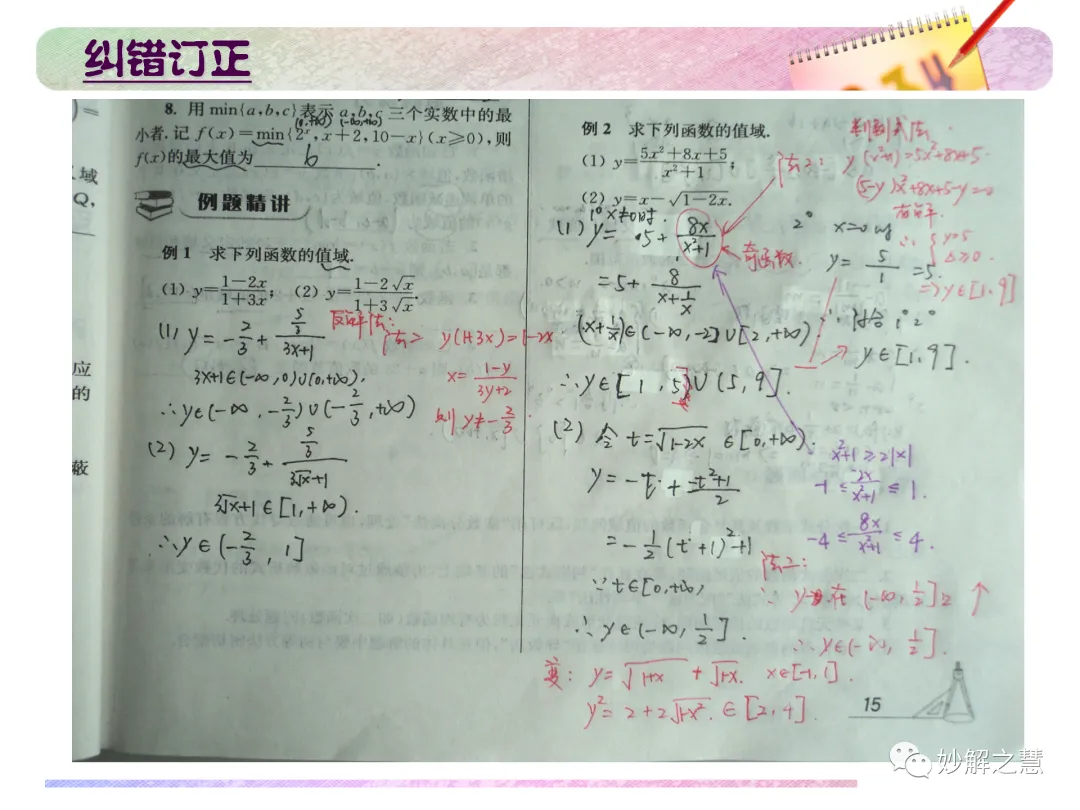 纠错订正
8. 用 min{a,b,c}表示 a,b,c 三个实数中的最
小者. 记 f(x)=min{2^x,x+2,10-x}(x≥0),则
f(x)的最大值为 6 .
域
Q,
应
的
蔽
例题精讲
例 1 求下列函数的值域.
(1) y=\frac{1-2x}{1+3x}; (2) y=\frac{1-2\sqrt{x}}{1+3\sqrt{x}}.
(1) y=-\frac{2}{3}+\frac{\frac{5}{3}}{3x+1}
3x+1∈(-∞,0)∪(0,+∞).
∴y∈(-∞,-\frac{2}{3})∪(-\frac{2}{3},+∞)
反解法:
法2 y(1+3x)=1-2x
x=\frac{1-y}{3y+2}
则 y≠-\frac{2}{3}.
(2) y=-\frac{2}{3}+\frac{\frac{5}{3}}{3\sqrt{x}+1}
3\sqrt{x}+1∈[1,+∞).
∴y∈(-\frac{2}{3},1]
例 2 求下列函数的值域.
(1) y=\frac{5x²+8x+5}{x²+1};
(2) y=x-\sqrt{1-2x}.
判别式法.
法二: y(x²+1)=5x²+8x+5
(5-y)x²+8x+5-y=0
有解.
∴ { y≠5
△≥0.
⇒y∈[1,9]
1° x≠0时.
(1) y=5+\frac{8x}{x²+1}
奇函数.
=5+\frac{8}{x+\frac{1}{x}}
(x+\frac{1}{x})∈(-∞,-2]∪[2,+∞)
∴y∈[1,5)∪(5,9].
2° x=0时
y=\frac{5}{1}=5.
∴综合1°2°
y∈[1,9].
(2) 令 t=\sqrt{1-2x} ∈[0,+∞).
y=-t+\frac{-t²+1}{2}
=-\frac{1}{2}(t+1)²+1
∵t∈[0,+∞)
∴y∈(-∞,\frac{1}{2}].
x²+1≥2|x|
-1≤\frac{2x}{x²+1}≤1.
-4≤\frac{8x}{x²+1}≤4.
法二:
∴y在(-∞,\frac{1}{2}]上↑
∴y∈(-∞,\frac{1}{2}].
变: y=\sqrt{1+x}+\sqrt{1-x}. x∈[-1,1].
y²=2+2\sqrt{1-x²}.∈[2,4].
15
妙解之慧